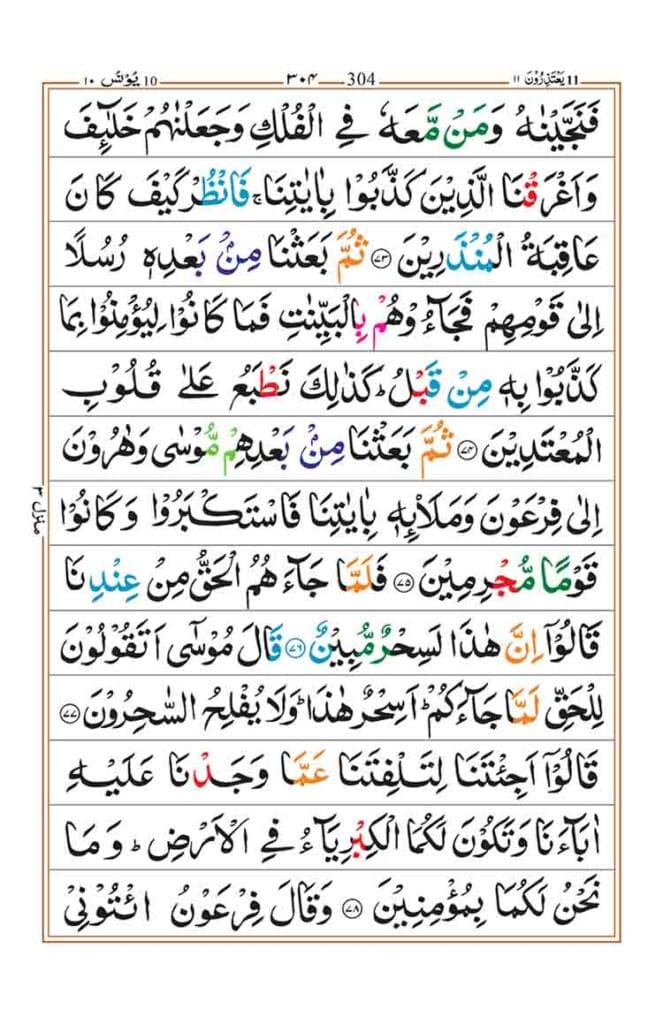 11 يَعْتَذِرُوْنَ ١١ 304 ٣٠۴ 10 يُوْنُسَ ١٠
فَنَجَّيْنٰهُ وَمَنْ مَّعَهٗ فِي الْفُلْكِ وَجَعَلْنٰهُمْ خَلٰٓئِفَ
وَاَغْرَقْنَا الَّذِيْنَ كَذَّبُوْا بِاٰيٰتِنَا ۚ فَانْظُرْ كَيْفَ كَانَ
عَاقِبَةُ الْمُنْذَرِيْنَ ۝٧٣ ثُمَّ بَعَثْنَا مِنْۢ بَعْدِهٖ رُسُلًا
اِلٰى قَوْمِهِمْ فَجَآءُوْهُمْ بِالْبَيِّنٰتِ فَمَا كَانُوْا لِيُؤْمِنُوْا بِمَا
كَذَّبُوْا بِهٖ مِنْ قَبْلُ ؕ كَذٰلِكَ نَطْبَعُ عَلٰى قُلُوْبِ
الْمُعْتَدِيْنَ ۝٧۴ ثُمَّ بَعَثْنَا مِنْۢ بَعْدِهِمْ مُّوْسٰى وَهٰرُوْنَ
اِلٰى فِرْعَوْنَ وَمَلَا۟ئِهٖ بِاٰيٰتِنَا فَاسْتَكْبَرُوْا وَكَانُوْا
قَوْمًا مُّجْرِمِيْنَ ۝٧٥ فَلَمَّا جَآءَهُمُ الْحَقُّ مِنْ عِنْدِنَا
قَالُوْٓا اِنَّ هٰذَا لَسِحْرٌ مُّبِيْنٌ ۝٧٦ قَالَ مُوْسٰٓى اَتَقُوْلُوْنَ
لِلْحَقِّ لَمَّا جَآءَكُمْ ؕ اَسِحْرٌ هٰذَا ؕ وَلَا يُفْلِحُ السّٰحِرُوْنَ ۝٧٧
قَالُوْٓا اَجِئْتَنَا لِتَلْفِتَنَا عَمَّا وَجَدْنَا عَلَيْهِ
اٰبَآءَنَا وَتَكُوْنَ لَكُمَا الْكِبْرِيَآءُ فِي الْاَرْضِ ؕ وَمَا
نَحْنُ لَكُمَا بِمُؤْمِنِيْنَ ۝٧٨ وَقَالَ فِرْعَوْنُ ائْتُوْنِيْ
منزل ٣